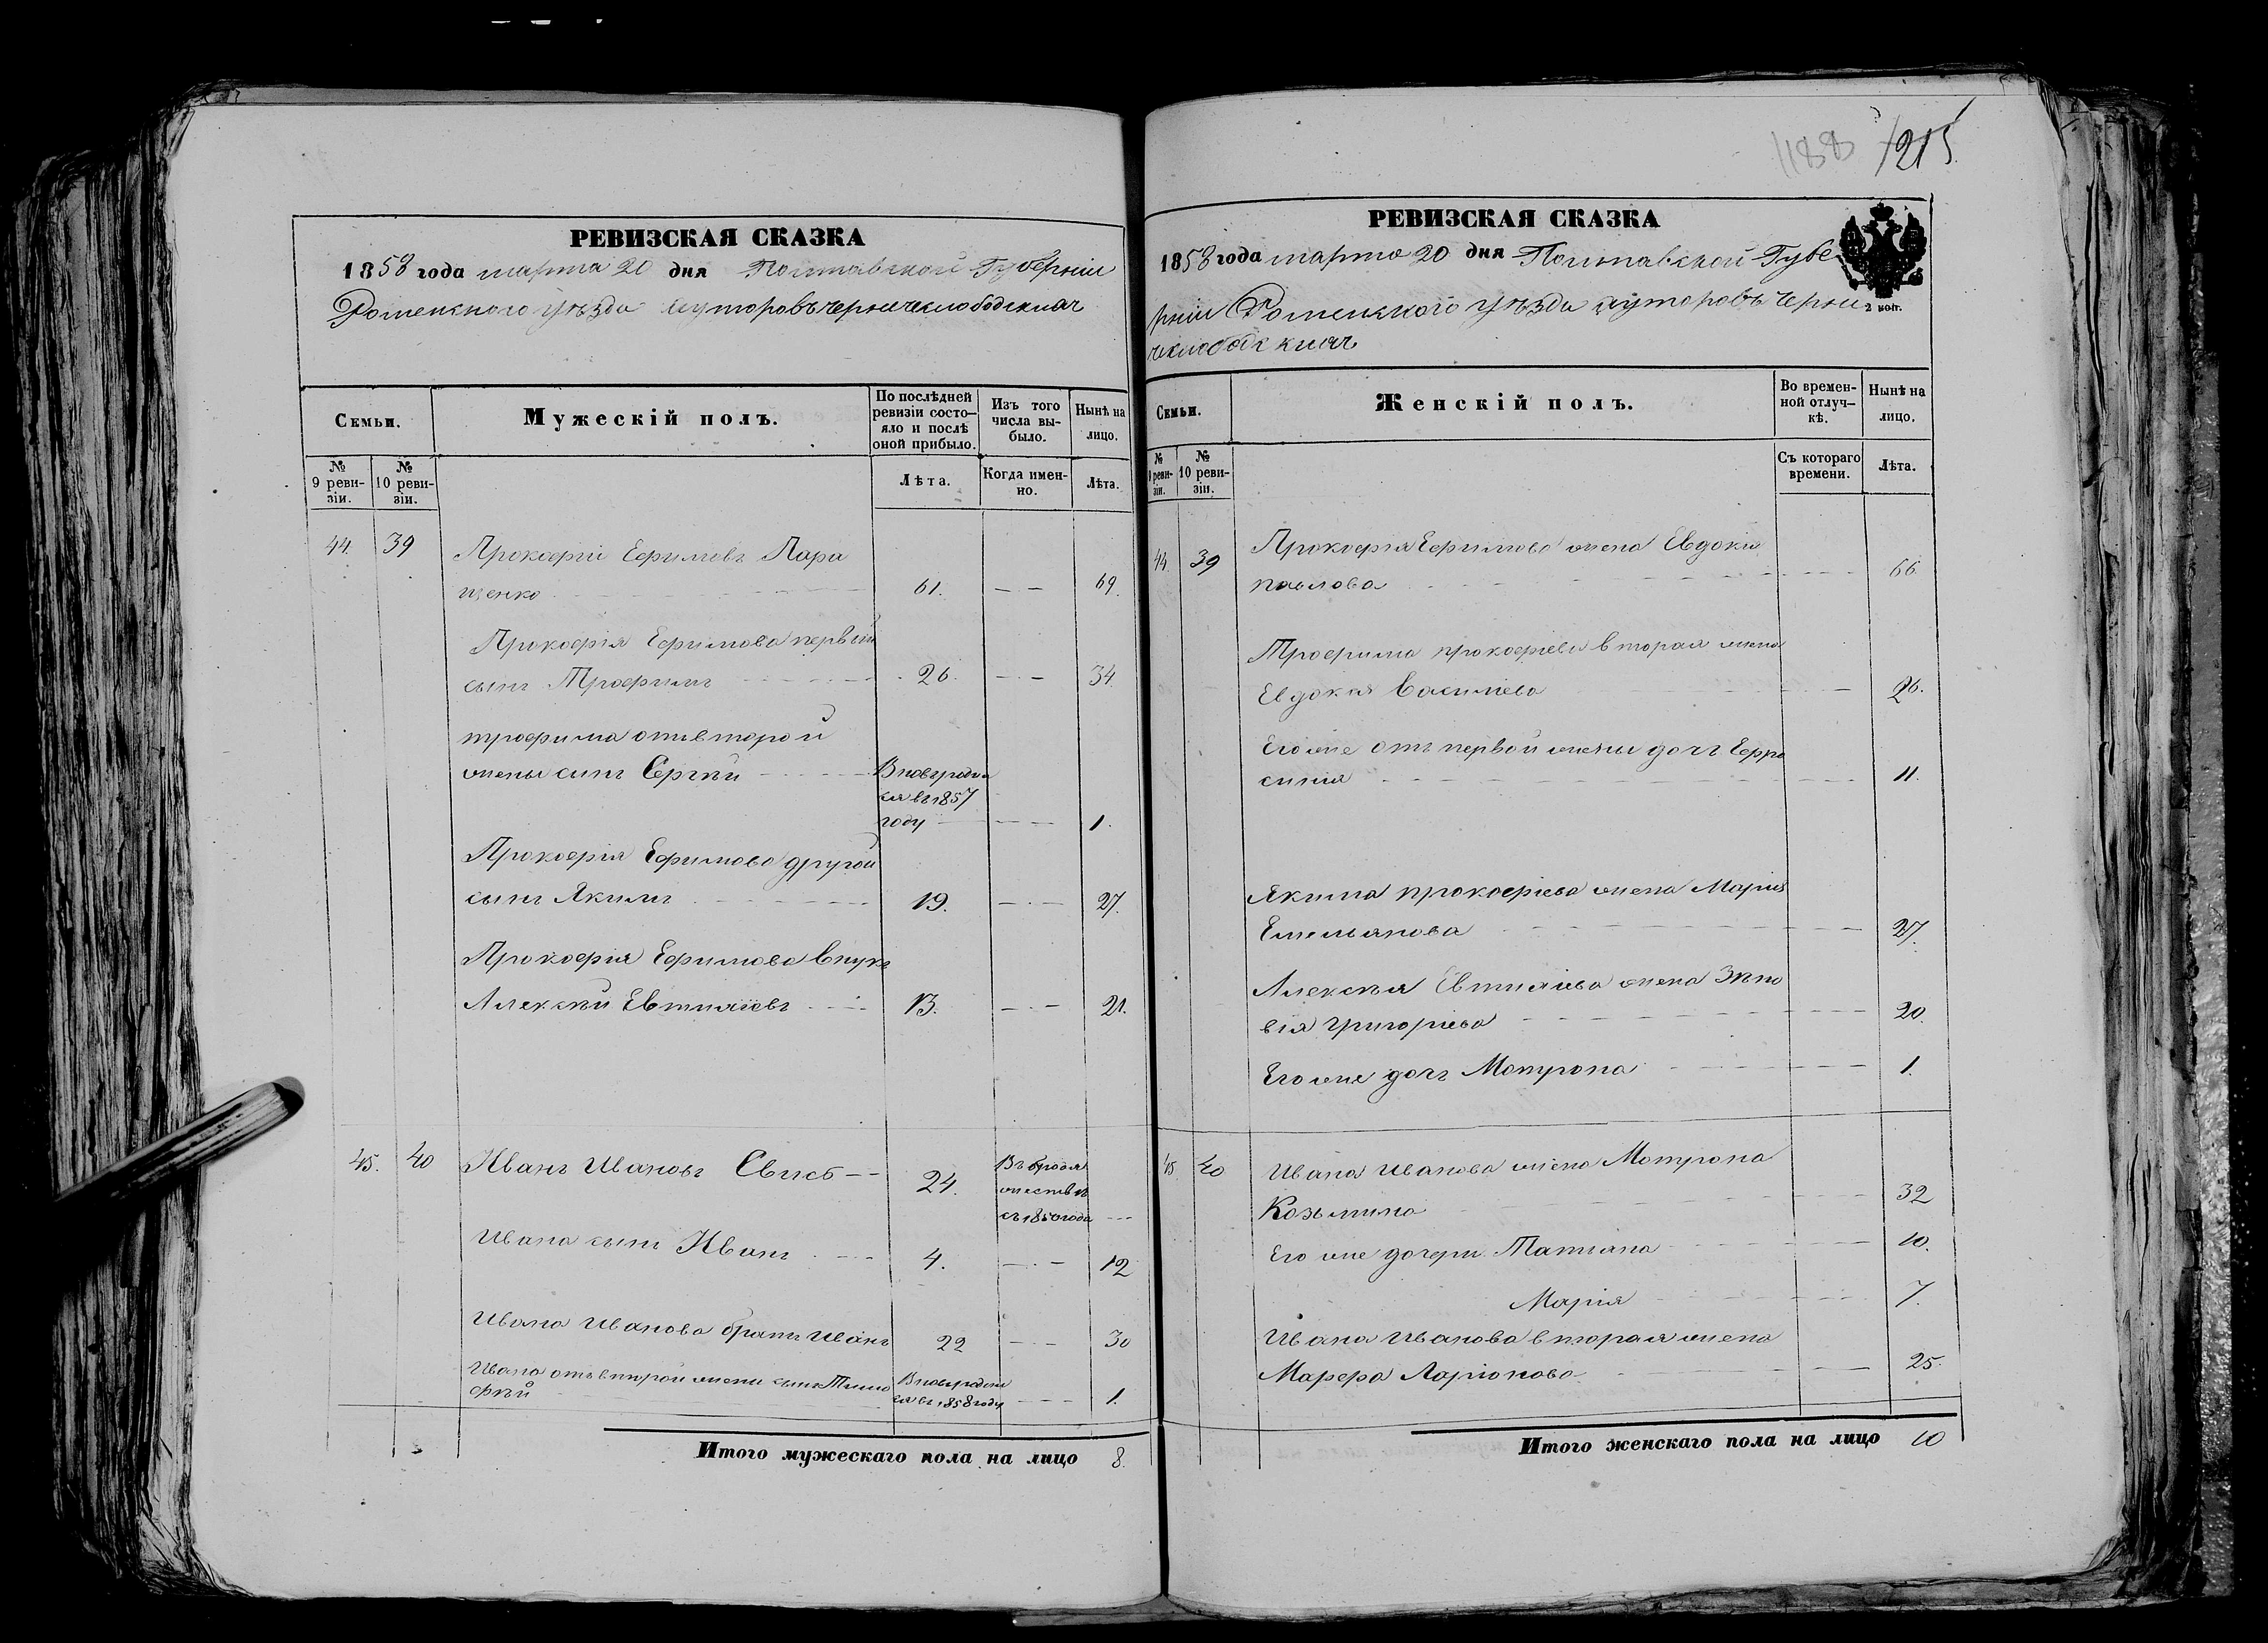 1188 1215
РЕВИЗСКАЯ СКАЗКА
1858 года марта 20 дня Полтавской Губерніи
Роменскаго уѣзда хуторовъ чернечеслободскихъ
Семьи.
Мужескій полъ.
По послѣдней ревизіи состо-яло и послѣ оной прибыло.
Изъ того числа вы-было.
Нынѣ на лицо.
№ 9 реви-зіи.
№ 10 реви-зіи.
Лѣта.
Когда имен-но.
Лѣта.
44. 39 Прокофій Ефимовъ Пара
щенко 61. 69.
Прокофія Ефимова первый
сынъ Трофимъ 26. 34.
трофима отъ второй
жены сынъ Сергѣй Вновь родил
ся въ 1857
году 1.
Прокофія Ефимова другой
сынъ Якимъ 19. 27.
Прокофія Ефимова внукъ
Алексѣй Евтихіевъ 13. 21.
45. 40 Иванъ Ивановъ Свис 24. Въ бродя
жествѣ
съ 1850 года
Ивана сынъ Иванъ 4. 12
Ивана Иванова братъ Иванъ 22 30
Ивана отъ второй жены сынъ Тимо
фѣй Вновь родил
ся въ 1858 году 1.
Итого мужескаго пола на лицо 8.
РЕВИЗСКАЯ СКАЗКА
1858 года марта 20 дня Полтавской Губе
рніи Роменскаго уѣзда хуторовъ черне
чеслободскихъ
2 коп.
Семьи.
Женскій полъ.
Во времен-ной отлуч-кѣ.
Нынѣ на лицо.
№ 9 реви-зіи.
№ 10 реви-зіи.
Съ котораго времени.
Лѣта.
44. 39 Прокофія Ефимова жена Евдокія
павлова 66.
Трофима прокофіева вторая жена
Евдокія Василіева 26.
Его же отъ первой жены дочь Ефро
синія 11.
Якима прокофіева жена Марія
Емельянова 27.
Алексѣя Евтихіева жена Зѣно
вія григоріева 20.
Его же дочь Мотрона 1.
45. 40 Ивана Иванова жена Мотрона
Козьмина 32
Его же дочери Татіана 10.
Марія 7.
Ивана Иванова вторая жена
Марфа Ларіонова 25.
Итого женскаго пола на лицо 10